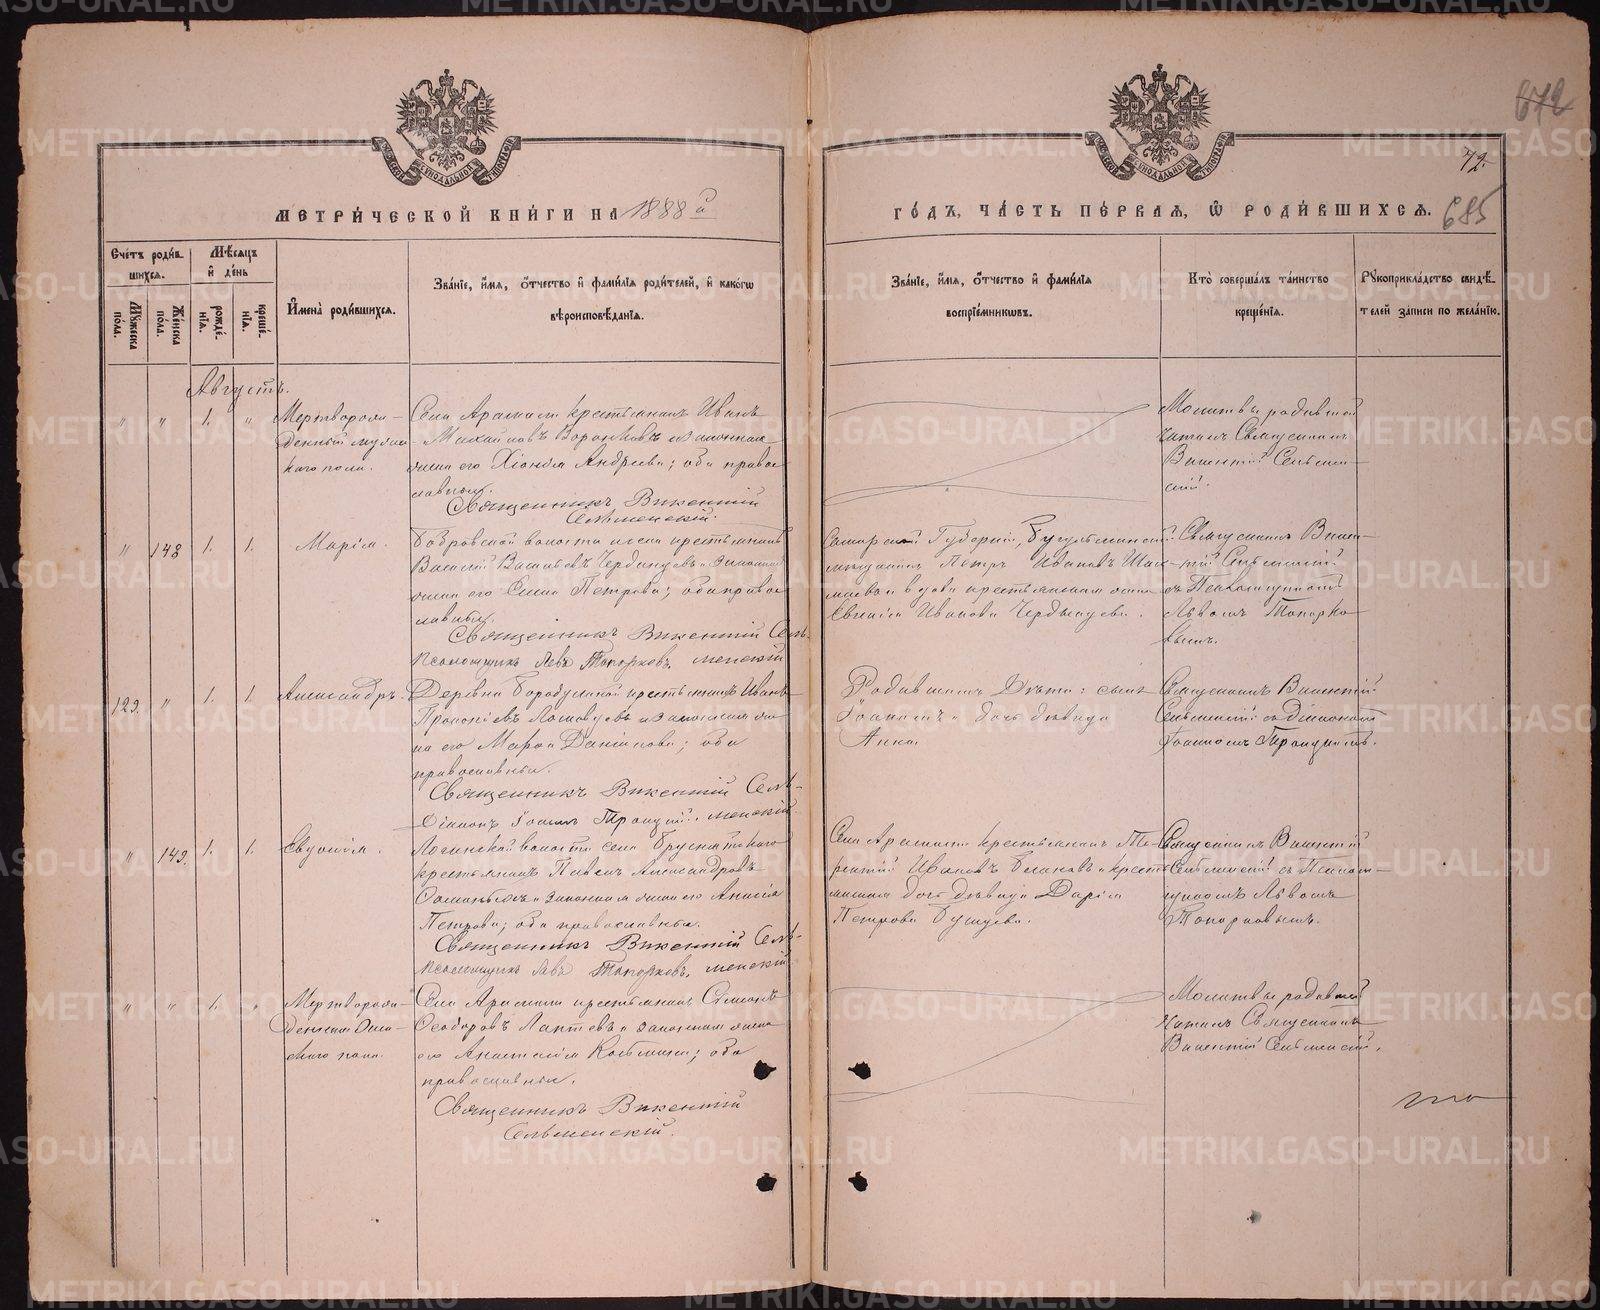 672
72.
685
МЕТРИ́ЧЕСКОЙ КНИ́ГИ НА 1888 й
ГО́ДЪ, ЧА́СТЬ ПЕ́РВАЯ, Ѿ РОДИ́ВШИХСЯ.
Сче́тъ роди́в-
шихся.
Му́жеска
по́ла.
Же́нска
по́ла.
Мѣ́сяцъ
и де́нь
рожде́-
нія.
креще́-
нія.
Имена̀ роди́вшихся.
Зва́ніе, и́мя, о́тчество и фами́лія роди́телей, и како́гѡ
вѣроисповѣ́данія.
Зва́ніе, и́мя, о́тчество и фами́лія
воспріе́мникѡвъ.
Кто̀ соверша́лъ та́инство
креще́нія.
Рукоприкла́дство свидѣ́-
телей за́писи по жела́нію.
Августъ.
" " 1. "
Мертворож-
денный мужес-
каго пола.
Села Арамили крестьянинъ Иванъ
Михайловъ Воронковъ и законная
жена его Хіонія Андреева; оба право-
славные.
Священникъ Викентій
Сельменскій.
Молитвы родившей
читалъ Священникъ
Викентій Сельмен-
скій.
" 148 1. 1.
Марія.
Бобровской волости и села крестьянинъ
Василій Васильевъ Чердынцевъ и законная
жена его Елена Петрова; оба право-
славные.
Священникъ Викентій Сель-
Псаломщикъ Левъ Топорковъ. менскій
Самарской Губерніи, Бугульминскій
мѣщанинъ Петръ Ивановъ
и вдова крестьянская жена
Евгенія Иванова Чердынцева.
Священникъ Викен-
тій Сельменскій
съ Псаломщикомъ
Львомъ Топорко-
вымъ.
129. " 1. 1.
Александръ.
Деревни Бородулиной крестьянинъ Иванъ
Прокопіевъ и законная же-
на его Марфа Даніилова; оба
православные.
Священникъ Викентій Сель-
Діаконъ Іоаннъ Троицкій. менскій
Родившаго дѣти: сынъ
Іоаннъ и дочь дѣвица
Анна.
Священникъ Викентій
Сельменскій съ Діакономъ
Іоанномъ Троицкимъ.
" 149. 1. 1.
Евдокія.
Логиновской волости села Брусятскаго
крестьянинъ Павелъ Александровъ
и законная жена его Анисія
Петрова; оба православные.
Священникъ Викентій Сель-
Псаломщикъ Левъ Топорковъ. менскій
Села Арамили крестьянинъ Те-
рентій Ивановъ и кресть-
янская дочь дѣвица Дарія
Петрова
Священникъ Викентій
Сельменскій съ Псалом-
щикомъ Львомъ
Топорковымъ.
" " 1. "
Мертворож-
денная женс-
каго пола.
Села Арамили крестьянинъ Симеонъ
Ѳеодоровъ Лаптевъ и законная жена
его Анастасія Козьмина; оба
православные.
Священникъ Викентій
Сельменскій.
Молитвы родившей
читалъ Священникъ
Викентій Сельменскій.